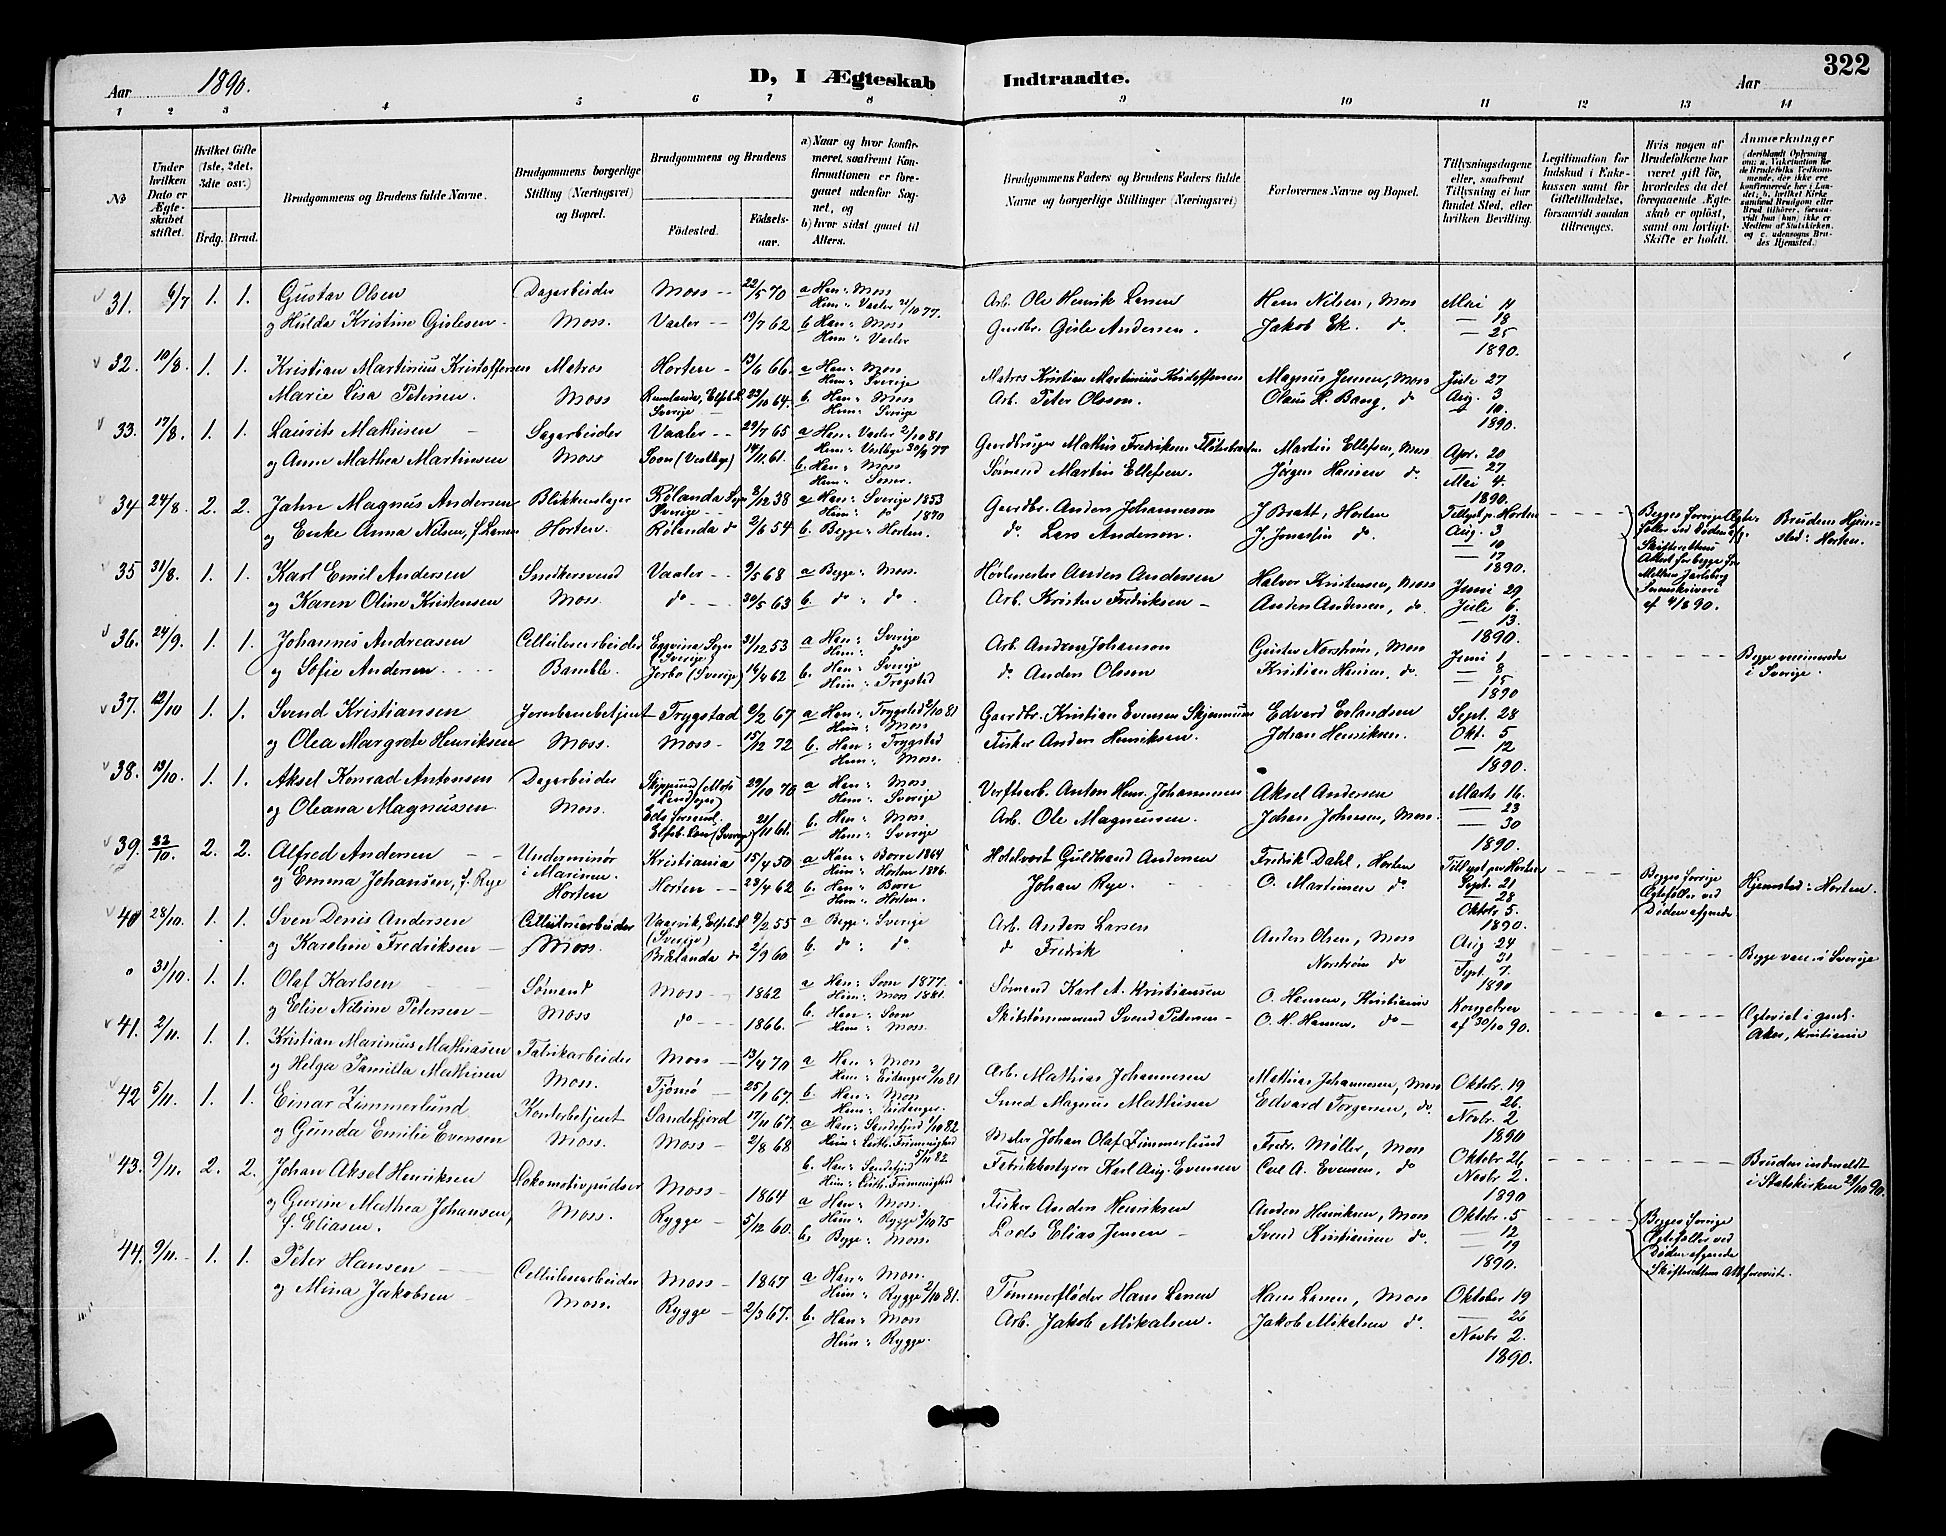 322
Aar 1890.
D, I Ægteskab Indtraadte.
Aar
1 2 3 4 5 6 7 8 9 10 11 12 13 14
No
Under hvilken Dato er Ægteskabet stiftet.
Hvilket Gifte (1ste, 2det, 3die osv.)
Brdg. Brud.
Brudgommens og Brudens fulde Navne.
Brudgommens borgerlige Stilling (Næringsvei) og Bopæl.
Brudgommens og Brudens
Födested.
Födselsaar.
a) Naar og hvor konfirmeret, saafremt Konfirmationen er foregaaet udenfor Sognet, og
b) hvor sidst gaaet til Alters.
Brudgommens Faders og Brudens Faders fulde Navne og borgerlige Stillinger (Næringsvei)
Forlovernes Navne og Bopæl.
Tillysningsdagene eller, saafremt Tillysning ei har fundet Sted, efter hvilken Bevilling.
Legitimation for Indskud i Enkekassen samt for Giftetilladelse, forsaavidt saadan tiltrænges.
Hvis nogen af Brudefolkene har været gift för, hvorledes da det foregaaende Ægteskab er oplöst, samt om lovligt Skifte er holdt.
Anmærkninger
31. 6/7 1. 1. Gustav Olsen Dagarbeider Moss 22/5 70 a Han: Moss Arb. Ole Henrik Larsen Hans Nilsen, Moss Mai 11
Hun: Vaaler 21/10 77. — 18
og Hulda Kristine Gislesen Moss. Vaaler 19/7 62 b. Han: Moss Gardbr. Gisle Andersen. Jakob Ek. do — 25
Hun: Vaaler 1890.
32. 10/8. 1. 1. Kristian Martinius Kristoffersen Matros Horten 13/6 66. a Han: Moss Matros Kristian Martinius Kristoffersen Magnus Jensen, Moss Juli 27
Hun: Sverige Aug. 3
Marie Lisa Petersen. Moss Elfsb.l. Sverige 23/10 64. b. Han: Moss Arb. Peter Olsson. Olaus H. Bang, do — 10.
Hun: Sverige 1890.
33. 17/8. 1. 1. Laurits Mathisen Sagarbeider Vaaler 29/7 65 a Han: Vaaler 2/10 81 Gaardbruger Mathis Fredriksen Martin Ellefsen, Moss Apr. 20
Hun: Vestby 30/9 77 — 27
og Anne Mathea Martinsen Moss Soon (Vestby) 14/11 61. b. Han: Moss Sømand Martin Ellefsen. Jørgen Hansen do. Mai 4.
Hun: Soner. 1890.
34. 24/8. 2. 2. Jahn Magnus Andersen Blikkenslager Rølanda Sogn Sverige 2/12 38 a Han: Sverige 1853 Gaardbr. Anders Johanneson J. Bratt, Horten Tillyst pr. Horten
Hun: do 1870 Aug. 3
og Enke Anna Nilsen, f. Larsen Horten. Rølanda do 2/6 54 b. Begge: Horten. do. Lars Anderson. J. Jonaslin do. — 10
— 17
1890.
Begges forrige Ægtefæller ved Døden afg. Skifterettens Attest for begge fra Mellem Jarlsberg Sorenskriveri af 4/8 90.
Brudens Hjemsted: Horten.
35 31/8. 1. 1. Karl Emil Andersen Snedkersvend Vaaler 9/5 68 a Begge: Moss. Anders Andersen Halvor Kristensen, Moss Juni 29
og Karen Oline Kristensen Moss. do 30/5 63 b do do. Arb. Kristen Fredriksen Anders Andersen, do. Juli 6.
— 13.
1890.
36. 24/9. 1. 1. Johannes Andreasen Cellulosearbeider Sogn (Sverige) 31/12 53 a Han: Sverige Arb. Andreas Johanson Gustav Norstrøm, Moss Juni 1
Hun: do — 8
og Sofie Andersen Bamble. Jerbo (Sverige) 14/4 62 b. Han: Sverige do. Anders Olsen Kristian Hansen, do. — 15
Hun: Trøgstad 1890
Begge vaccinerede i Sverige.
37. 12/10 1. 1. Svend Kristiansen Jernbanebetjent Trygstad 2/2 67 a Han: Trygstad 2/10 81 Gaardbr. Kristian Evensen Edvard Erlandsen Sept. 28
Hun: Moss Okt. 5
og Olea Margrete Henriksen Moss. Moss 15/12 72 b. Han: Trygstad Fisker Anders Henriksen. Johan Henriksen. — 12
Hun: Moss. 1890.
38. 13/10. 1. 1. Aksel Konrad Antonsen Dagarbeider 29/10 70 a Han: Moss Verftsarb. Anton Henr. Johannesen Aksel Andersen Marts 16.
Hun: Sverige — 23
og Oleana Magnussen Moss. Elfsb. Len (Sverige) 21/11 61. b. Han: Moss Arb. Ole Magnussen. Johan Johnsen, Moss. — 30
Hun: Sverige 1890.
39. 22/10. 2. 2. Alfred Andersen Underminør i Marinen. Kristiania 15/4 50 a Han: Borre 1864 Hotelvært Guldbrand Andersen Fredrik Dahl, Horten Tillyst per Horten
Hun: Horten 1876. Sept. 21
og Emma Johansen, f. Rye Horten Horten 23/4 62 b. Han: Borre Johan Rye. O. Martinsen do — 28
Hun: Horten. Oktbr 5.
1890.
Begges forrige Ægtefæller ved Døden afgaaede. Hjemsted: Horten.
40 28/10. 1. 1. Sven Denis Andersen Cellulosearbeider Elfsb.l. (Sverige) 9/2 55 a Begge: Sverige Arb. Anders Larsen Anders Olsen, Moss Aug 24
— 31
og Karoline Fredriksen Moss. Brålanda do 2/9 60 b. do: do. do Fredrik Norstrøm do Sept. 7.
1890
Begge vacc. i Sverige
31/10. 1. 1. Olaf Karlsen Sømand Moss 1862 a Han: Soon 1877. Sømand Karl A. Kristiansen O. Hansen, Kristiania Kongebrev
Hun: Moss 1881.
og Elise Nilsine Petersen Moss do 1866. b. Han: Soon Skibstømmermand Svend Petersen O. M. Hansen, do af 30/10 90.
Hun: Moss.
Aker, Kristiania
41. 2/11. 1. 1. Kristian Marinus Mathiasen Fabrikarbeider Moss 13/4 70 a Han: Moss Arb. Mathias Johannesen Mathias Johannesen, Moss Oktbr. 19
Hun: Eidanger 2/10 81 — 26.
og Helga Pamilla Mathisen Moss. Tjømø 25/1 67. b. Han: Moss Smed Magnus Mathisen Edvard Torgersen, do. Novbr. 2
Hun: Eidanger. 1890
42 5/11. 1. 1. Einar Zimmerlund Kontorbetjent Sandefjord 17/11 67. a Han: Sandefjord 1/10 82 Maler Johan Olaf Zimmerlund Fredr. Møller, Moss Oktbr 26
Hun: Luth. Frimenighed 5/11 82.
og Gunda Emilie Evensen Moss. Moss 2/8 68 b. Han: Sandefjord Fabrikbestyrer Karl Aug. Evensen Carl A. Evensen, do Novbr 2.
Hun: Luth. Frimenighed 1890
Bruden indmeldt i Statskirken 29/10 90.
43. 9/11. 2. 2. Johan Aksel Henriksen Lokomotivpudser Moss 1864 a Han: Moss. Fisker Anders Henriksen Anders Henriksen, Moss Oktobr. 5
Hun: Rygge 3/10 75 — 12
og Gurine Mathea Johansen, f. Eliasen. Moss. Rygge 5/12 60. b. Begge: Moss. Lods Elias Jensen Svend Kristiansen do. — 19
1890.
Begges forrige Ægtefæller ved Døden afgaaede
44. 9/11. 1. 1. Peter Hansen Cellulosearbeider Moss 1867 a Han: Moss. Tømmerfløder Hans Larsen Hans Larsen, Moss Oktober 19
Hun: Rygge 2/10 81. — 26
og Mina Jakobsen Moss. Rygge 2/3 67. b. Han: Moss Arb. Jakob Mikalsen. Jakob Mikalsen do. Novbr 2.
Hun: Rygge. 1890.